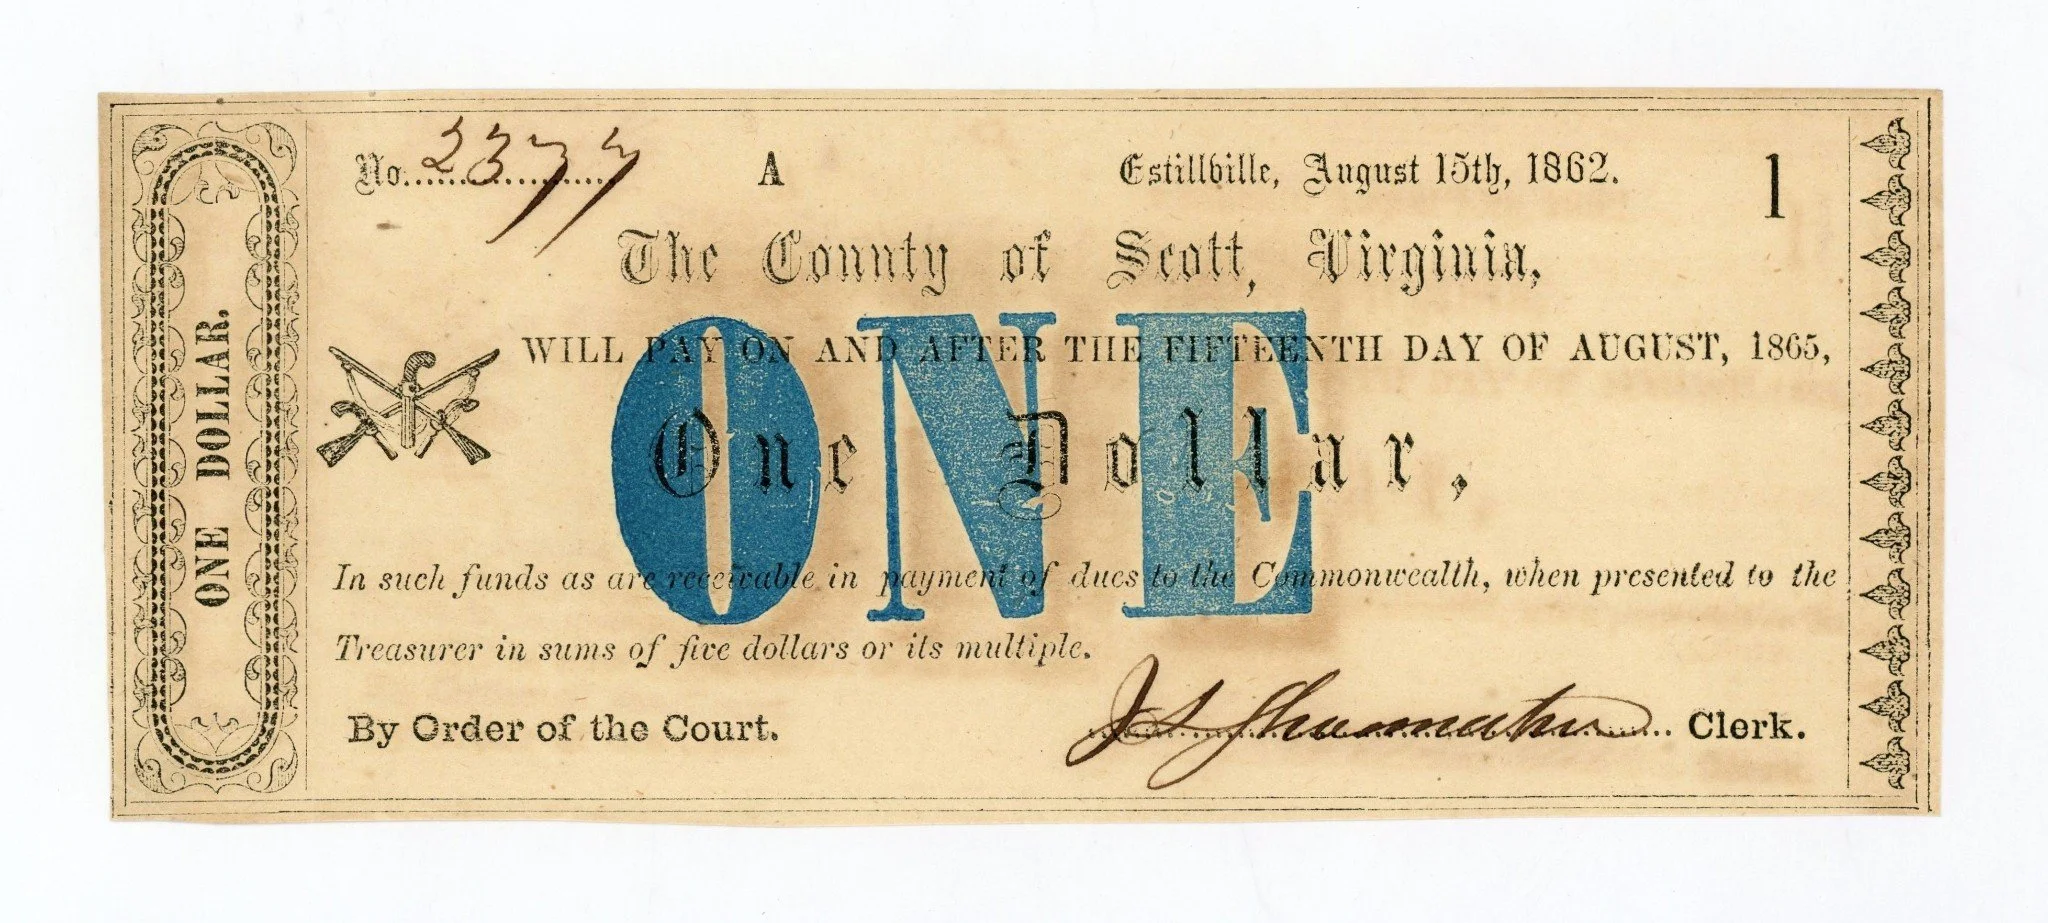 ONE DOLLAR.
No. 2377 A Estillville, August 15th, 1862. 1
The County of Scott, Virginia,
WILL PAY ON AND AFTER THE FIFTEENTH DAY OF AUGUST, 1865,
ONE
One Dollar,
In such funds as are receivable in payment of dues to the Commonwealth, when presented to the
Treasurer in sums of five dollars or its multiple.
By Order of the Court. Clerk.